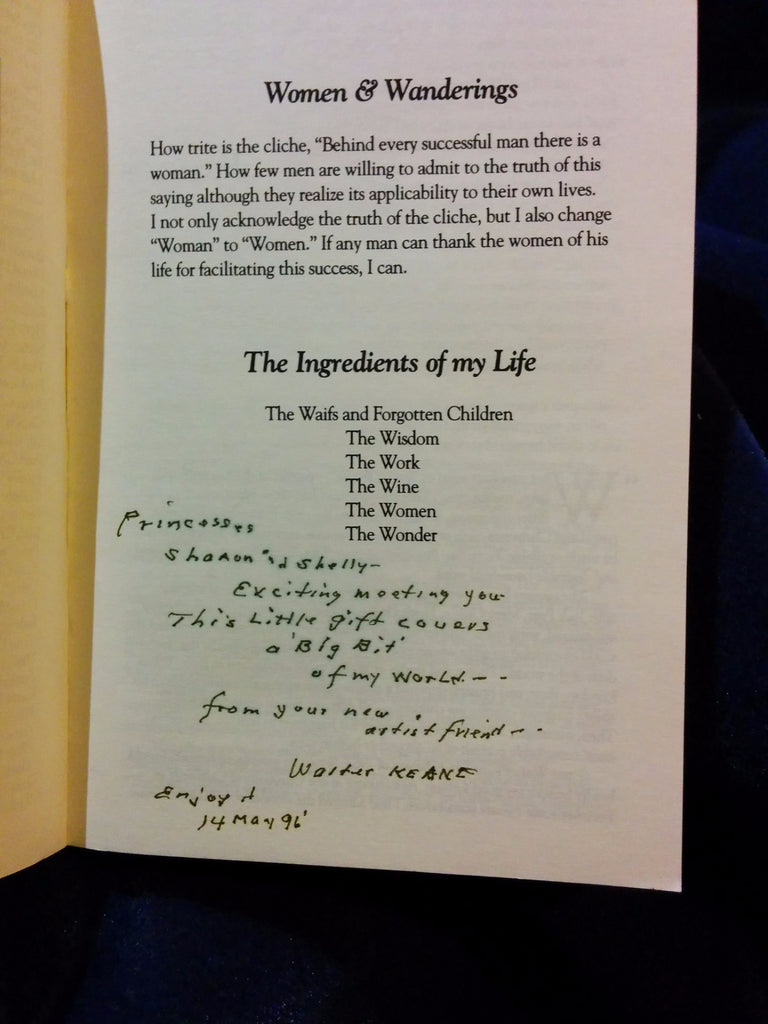 Women & Wanderings
How trite is the cliche, “Behind every successful man there is a
woman.” How few men are willing to admit to the truth of this
saying although they realize its applicability to their own lives.
I not only acknowledge the truth of the cliche, but I also change
“Woman” to “Women.” If any man can thank the women of his
life for facilitating this success, I can.
The Ingredients of my Life
The Waifs and Forgotten Children
The Wisdom
The Work
The Wine
The Women
The Wonder
Princesses
Sharon 'nd Shelly-
Exciting meeting you
This Little gift covers
a 'Big Bit'
of my World--
from your new
artist friend--
Walter KEANE
Enjoy
14 May 96'